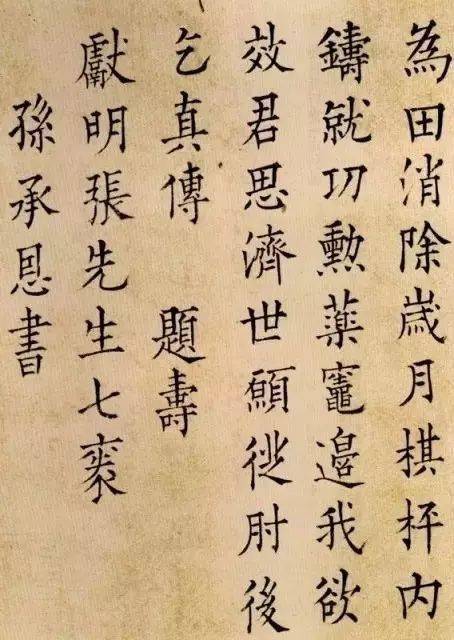 為田消除歲月棋枰內
鑄就功勳藥竈邊我欲
效君思濟世願從肘後
乞真傳　題壽
獻明張先生七袠
孫承恩書